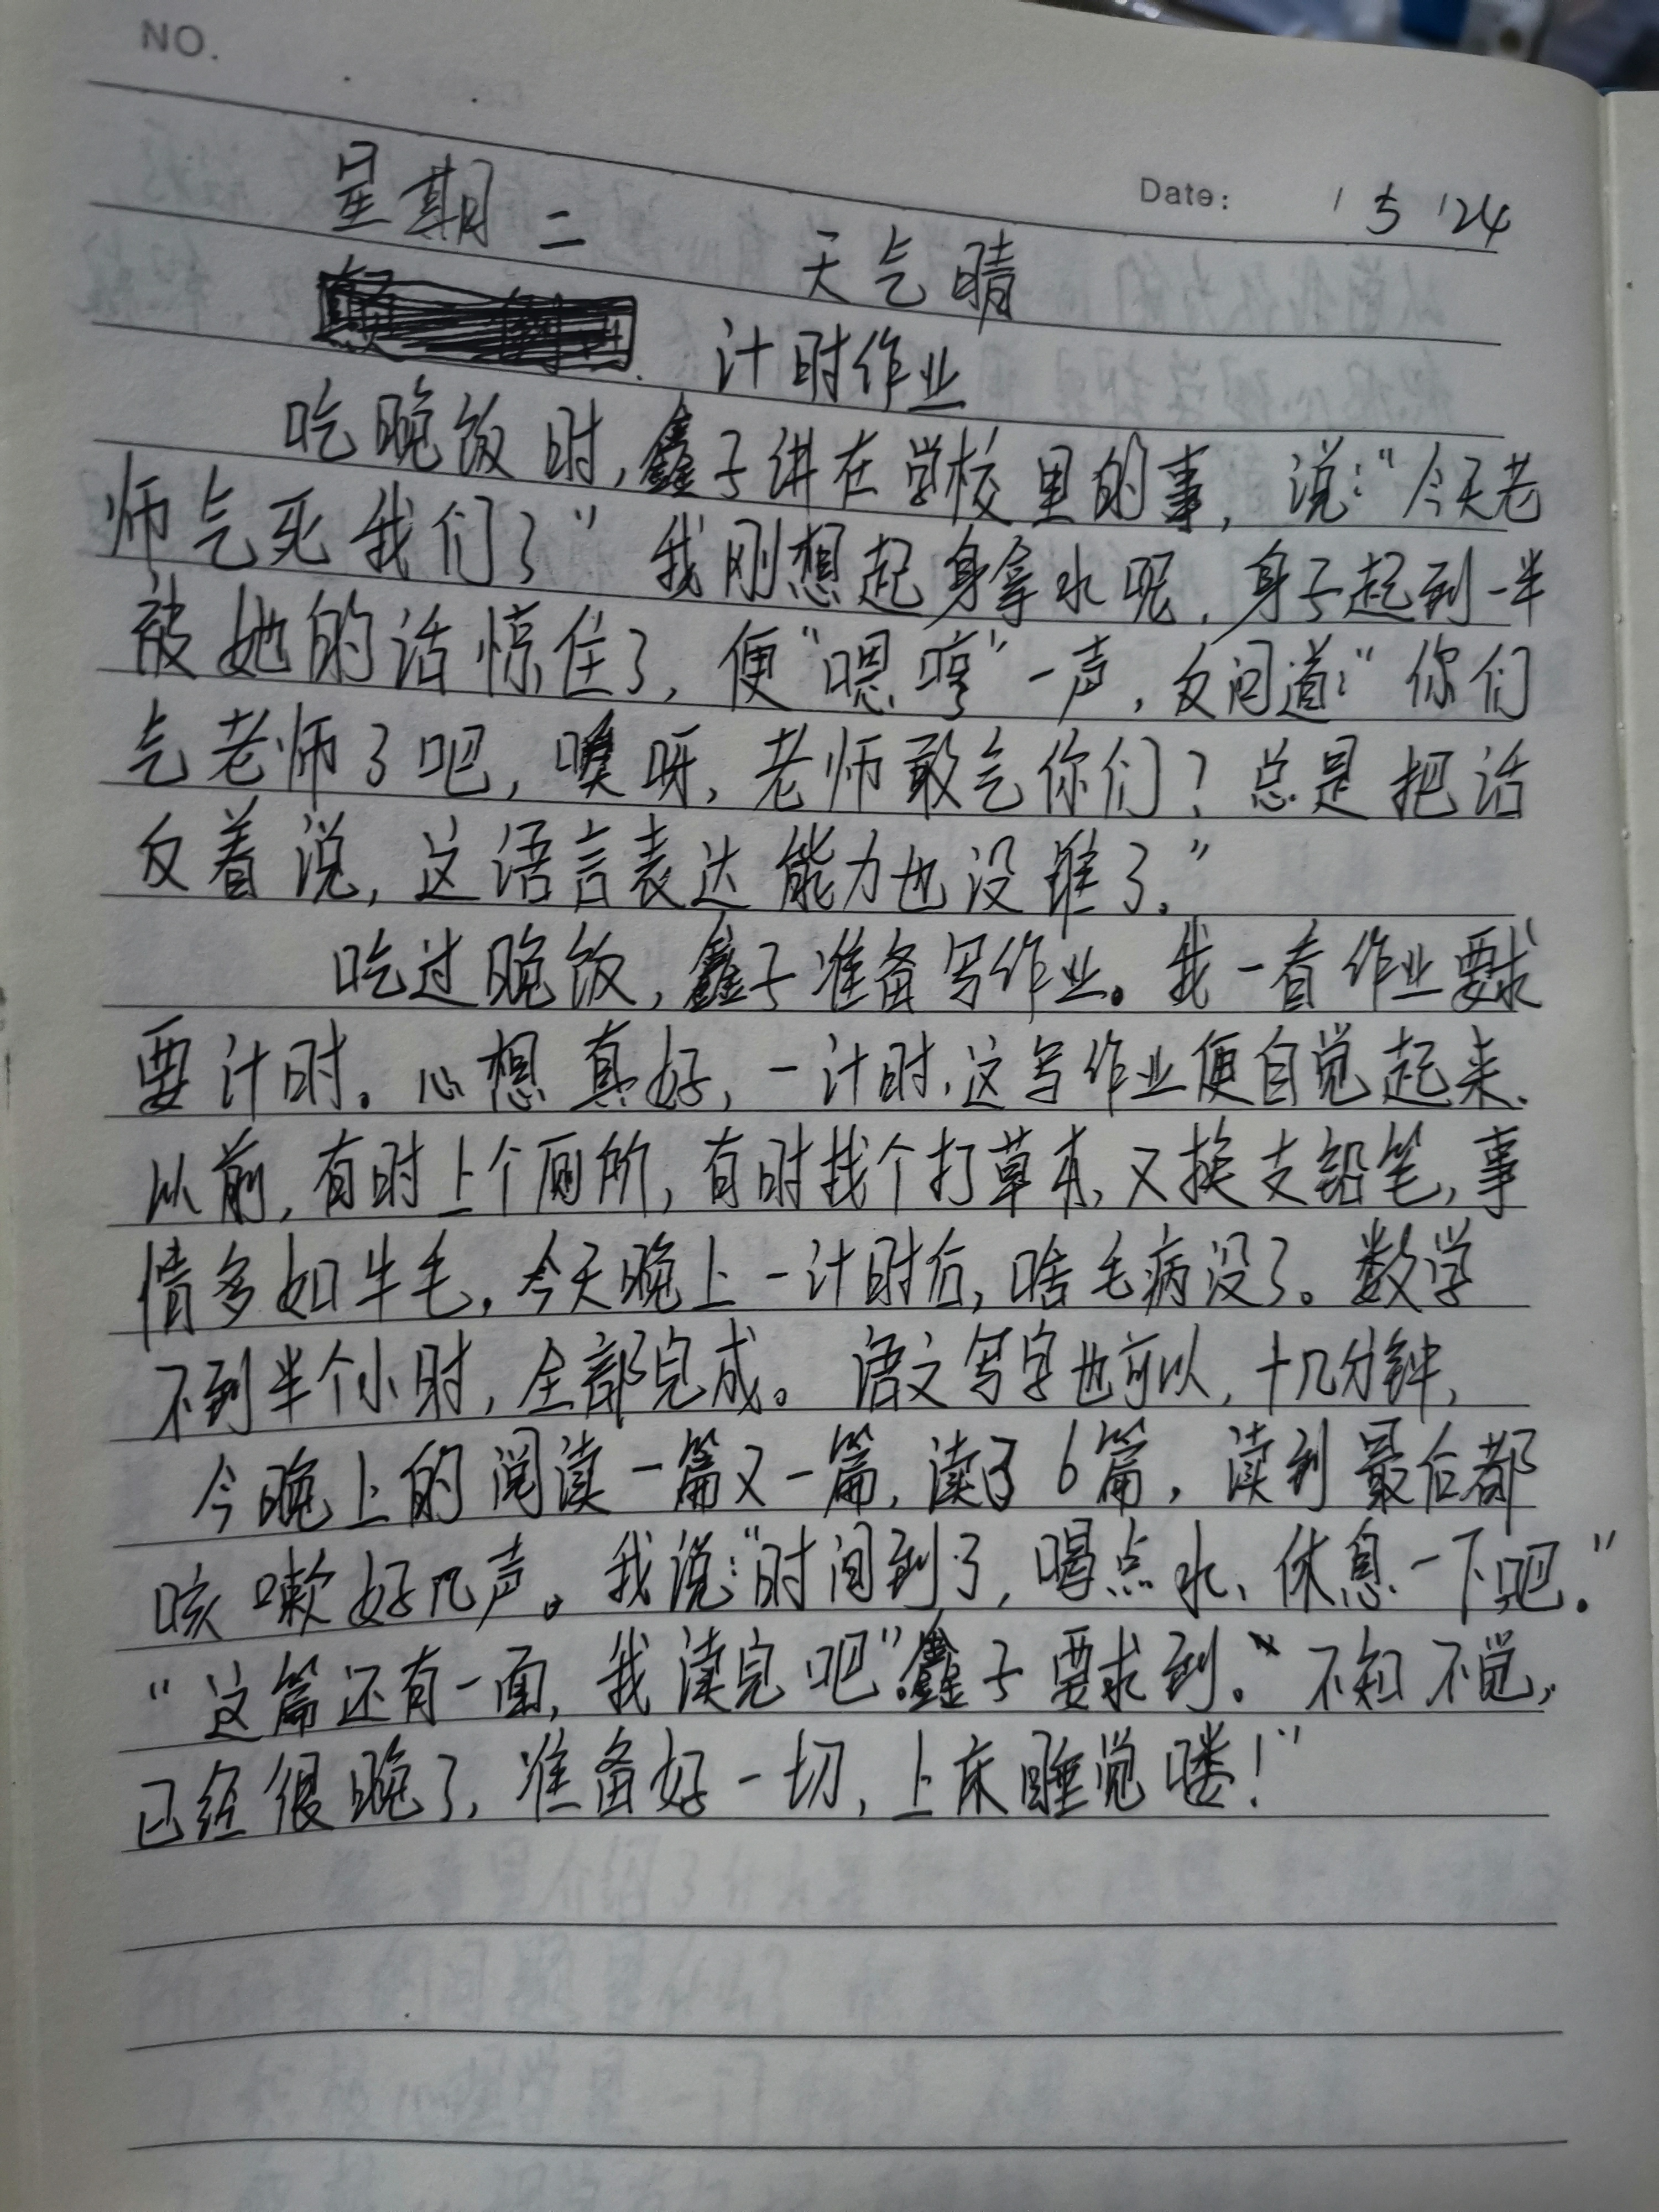 NO.
Date: / 5 '24
星期二 天气晴
计时作业
吃晚饭时,鑫子讲在学校里的事,说:“今天老
师气死我们了”我刚想起身拿水呢,身子起到一半
被她的话惊住了,便“嗯哼”一声,反问道:“你们
气老师了吧,噢呀,老师敢气你们?总是把话
反着说,这语言表达能力也没谁了。”
吃过晚饭,鑫子准备写作业。我一看作业要求
要计时。心想真好,一计时,这写作业便自觉起来、
以前,有时上个厕所,有时找个打草本,又换支铅笔,事
情多如牛毛,今天晚上一计时后,啥毛病没了。数学
不到半个小时,全部完成。语文写字也可以,十几分钟,
今晚上的阅读一篇又一篇,读了6篇,读到最后都
咳嗽好几声。我说:“时间到了,喝点水、休息一下吧.”
“这篇还有一面,我读完吧”.鑫子要求到。“不知不觉,
已经很晚了,准备好一切,上床睡觉喽!”